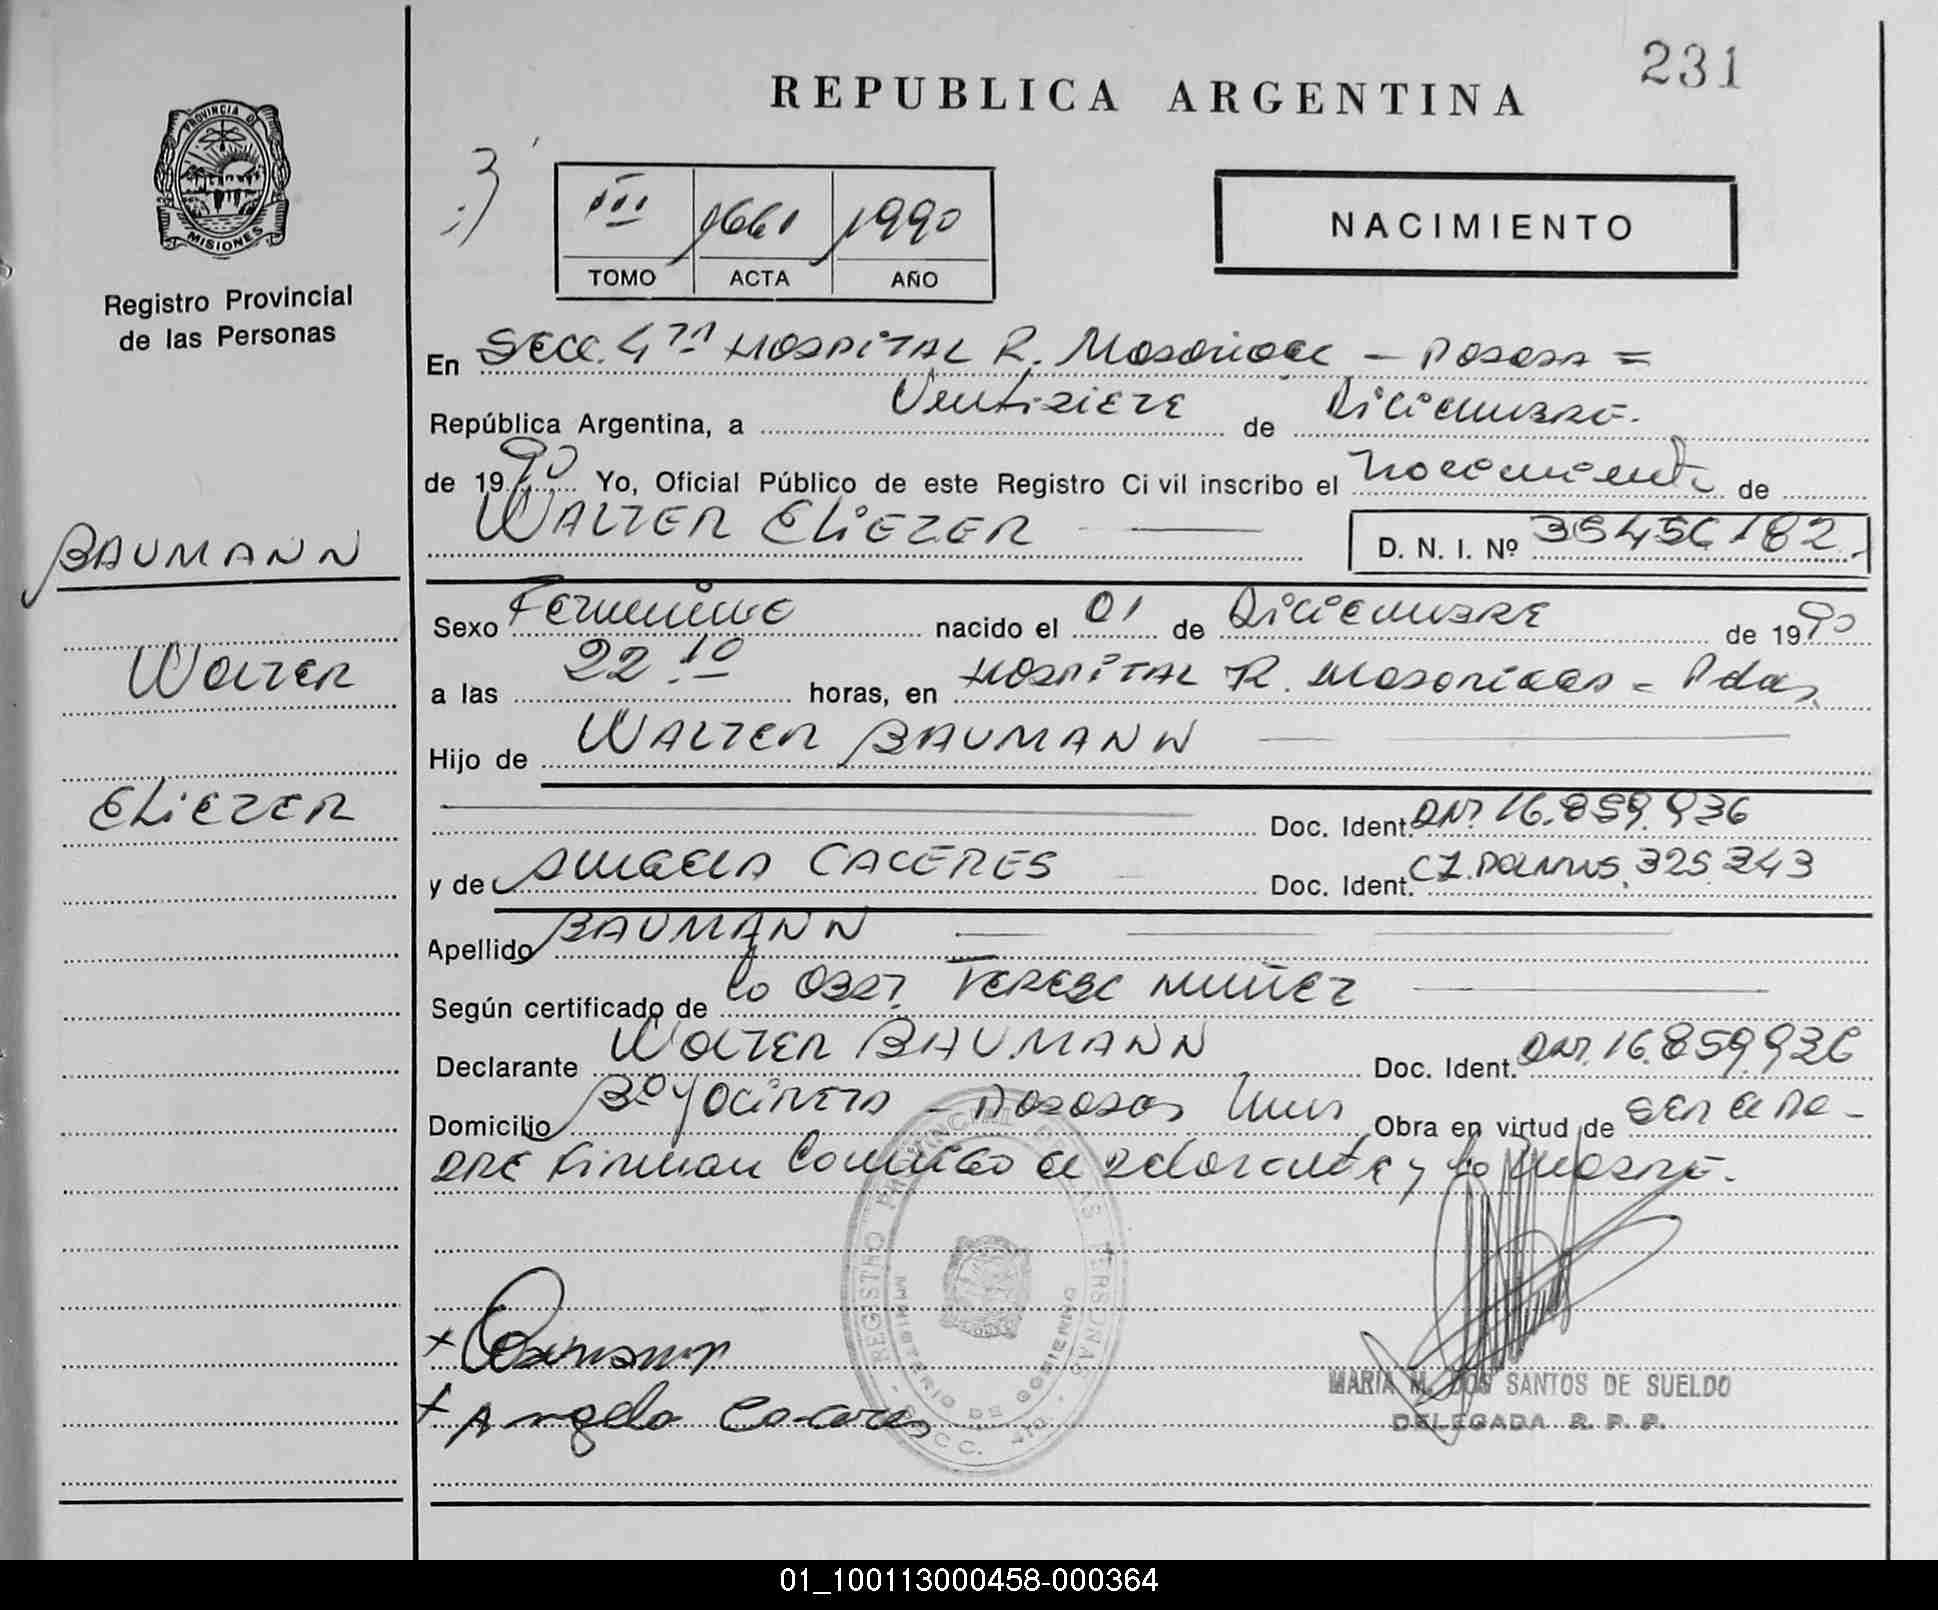 231
REPUBLICA ARGENTINA
PROVINCIA DE
MISIONES
Registro Provincial
de las Personas
III 1661 1990
TOMO ACTA AÑO
NACIMIENTO
En Secc. 4ta HOSPITAL R. =
República Argentina, a Ventisiete de Diciembre.
de 1990 Yo, Oficial Público de este Registro Civil inscribo el nacimiento de
WALTER ELIEZER D. N. I. Nº
BAUMANN
Walter
ELIEZER
Sexo Femenino nacido el 01 de Diciembre de 1990
a las 22.10 horas, en HOSPITAL R. - Pdas,
Hijo de WALTER BAUMANN
Doc. Ident. DNI. 16.859.936
y de ANGELA CACERES Doc. Ident. 325.343
Apellido BAUMANN
Según certificado de la Obst. Teresa NUÑEZ
Declarante Walter BAUMANN Doc. Ident. DNI. 16.859.936
Domicilio Bº Yacireta - Posadas Mnes Obra en virtud de ser el pa-
dre firman conmigo el declarante y la madre.
REGISTRO PROVINCIAL DE LAS PERSONAS
MINISTERIO DE GOBIERNO
+ Baumann
+ Angela Caceres
MARIA M. DOS SANTOS DE SUELDO
DELEGADA R. P. P.
01_100113000458-000364